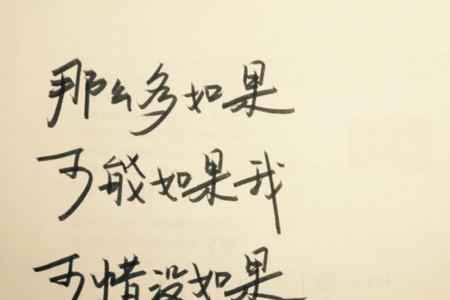 那么多如果
可能如果我
可惜没如果